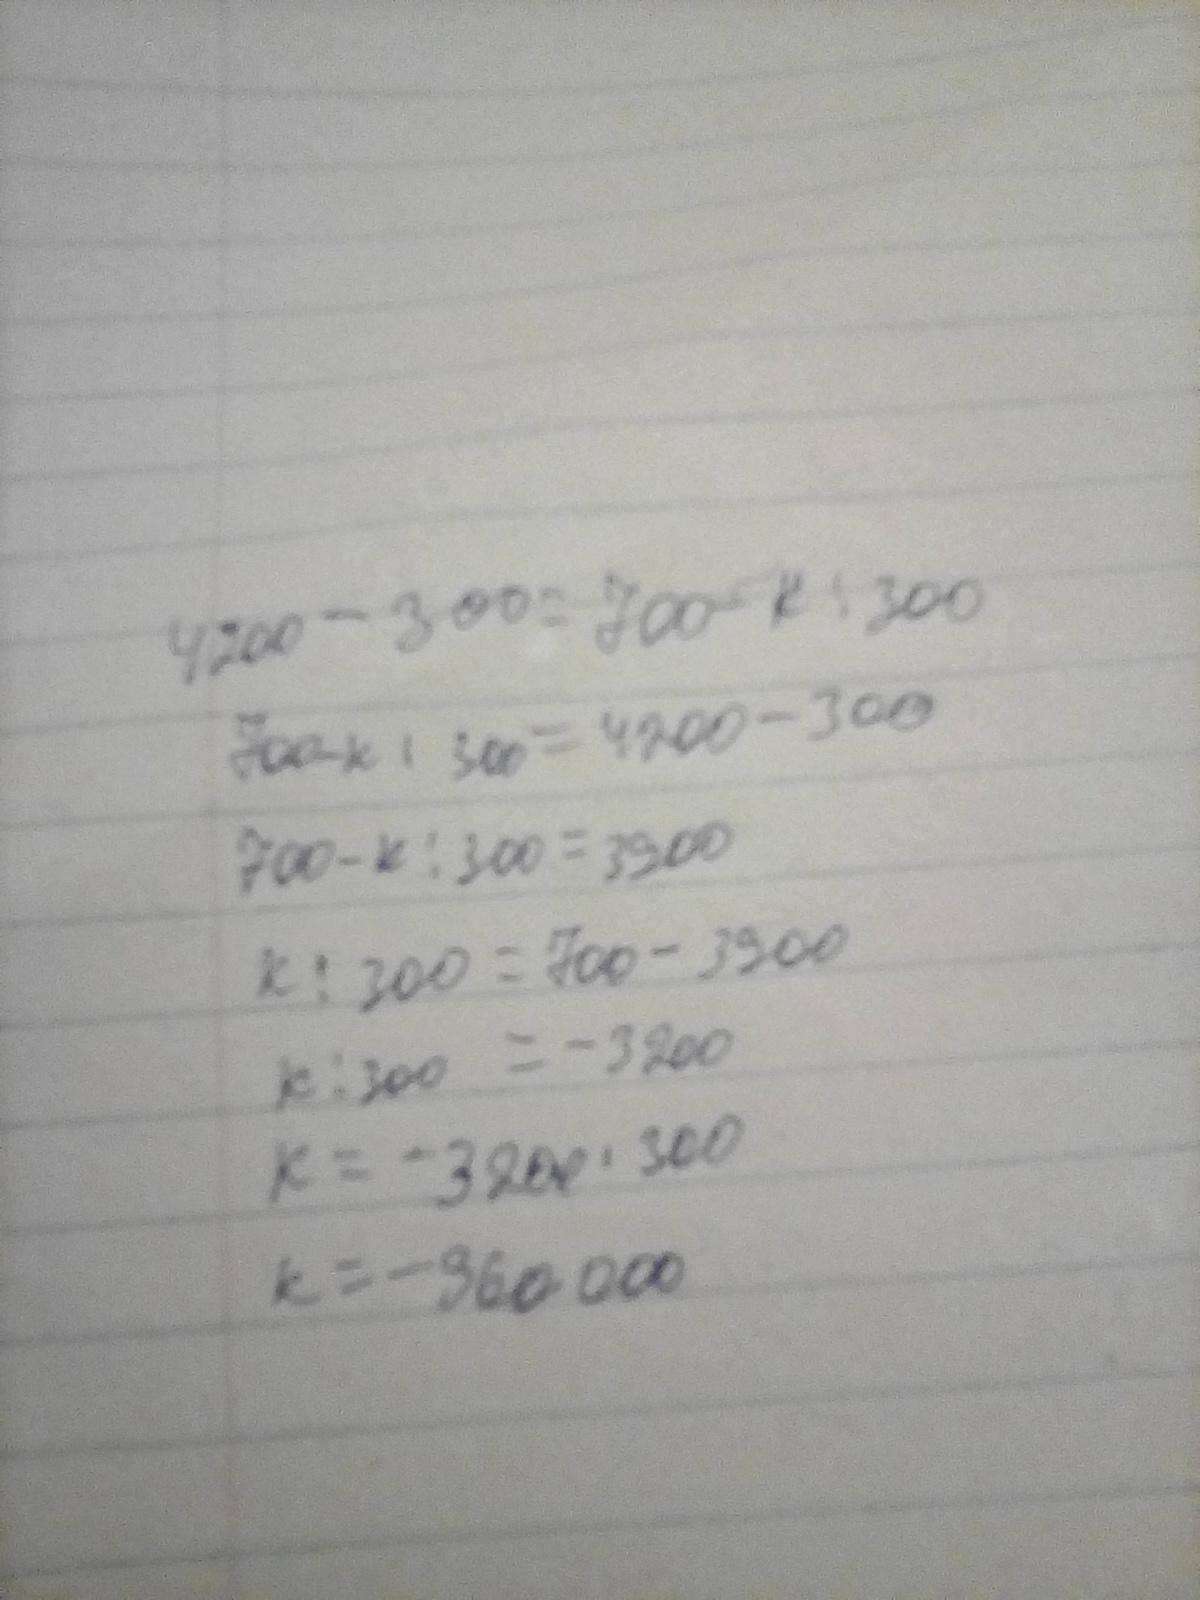 4200 - 300 = 700 - k : 300
700 - k : 300 = 4200 - 300
700 - k : 300 = 3900
k : 300 = 700 - 3900
k : 300 = -3200
k = -3200 · 300
k = -960 000